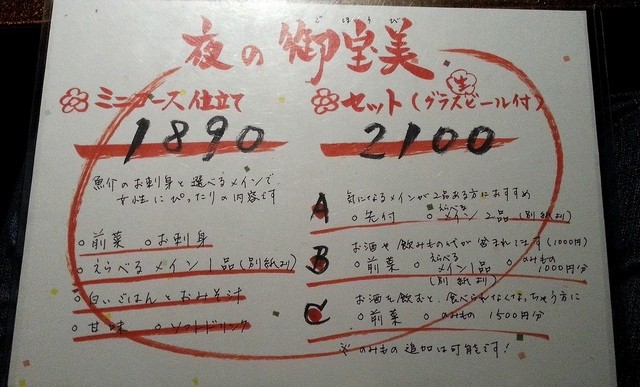 ごほうび
夜の御宝美
ミニコース仕立て
1890
魚介のお刺身と選べるメインで
女性にぴったりの内容です
○前菜 ○お刺身
○えらべるメイン1品(別紙より)
○白いごはんとおみそ汁
○甘味 ○ソフトドリンク
生
セット(グラスビール付)
2100
A 気になるメインが2品ある方におすすめ
えらべる
○先付 ○メイン2品(別紙より)
B お酒や飲みもの代が含まれてます(1000円)
えらべる
○前菜 ○メイン1品 ○のみもの
(別紙より) 1000円分
C お酒を飲むと、食べられなくなっちゃう方に
○前菜 ○のみもの 1500円分
※のみもの追加は可能です!